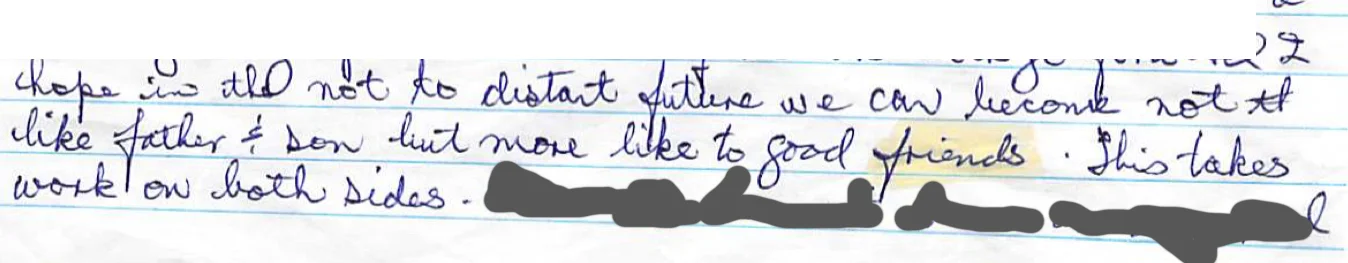 I
hope in the not to distant future we can become not
like father & son but more like to good friends. This takes
work on both sides.